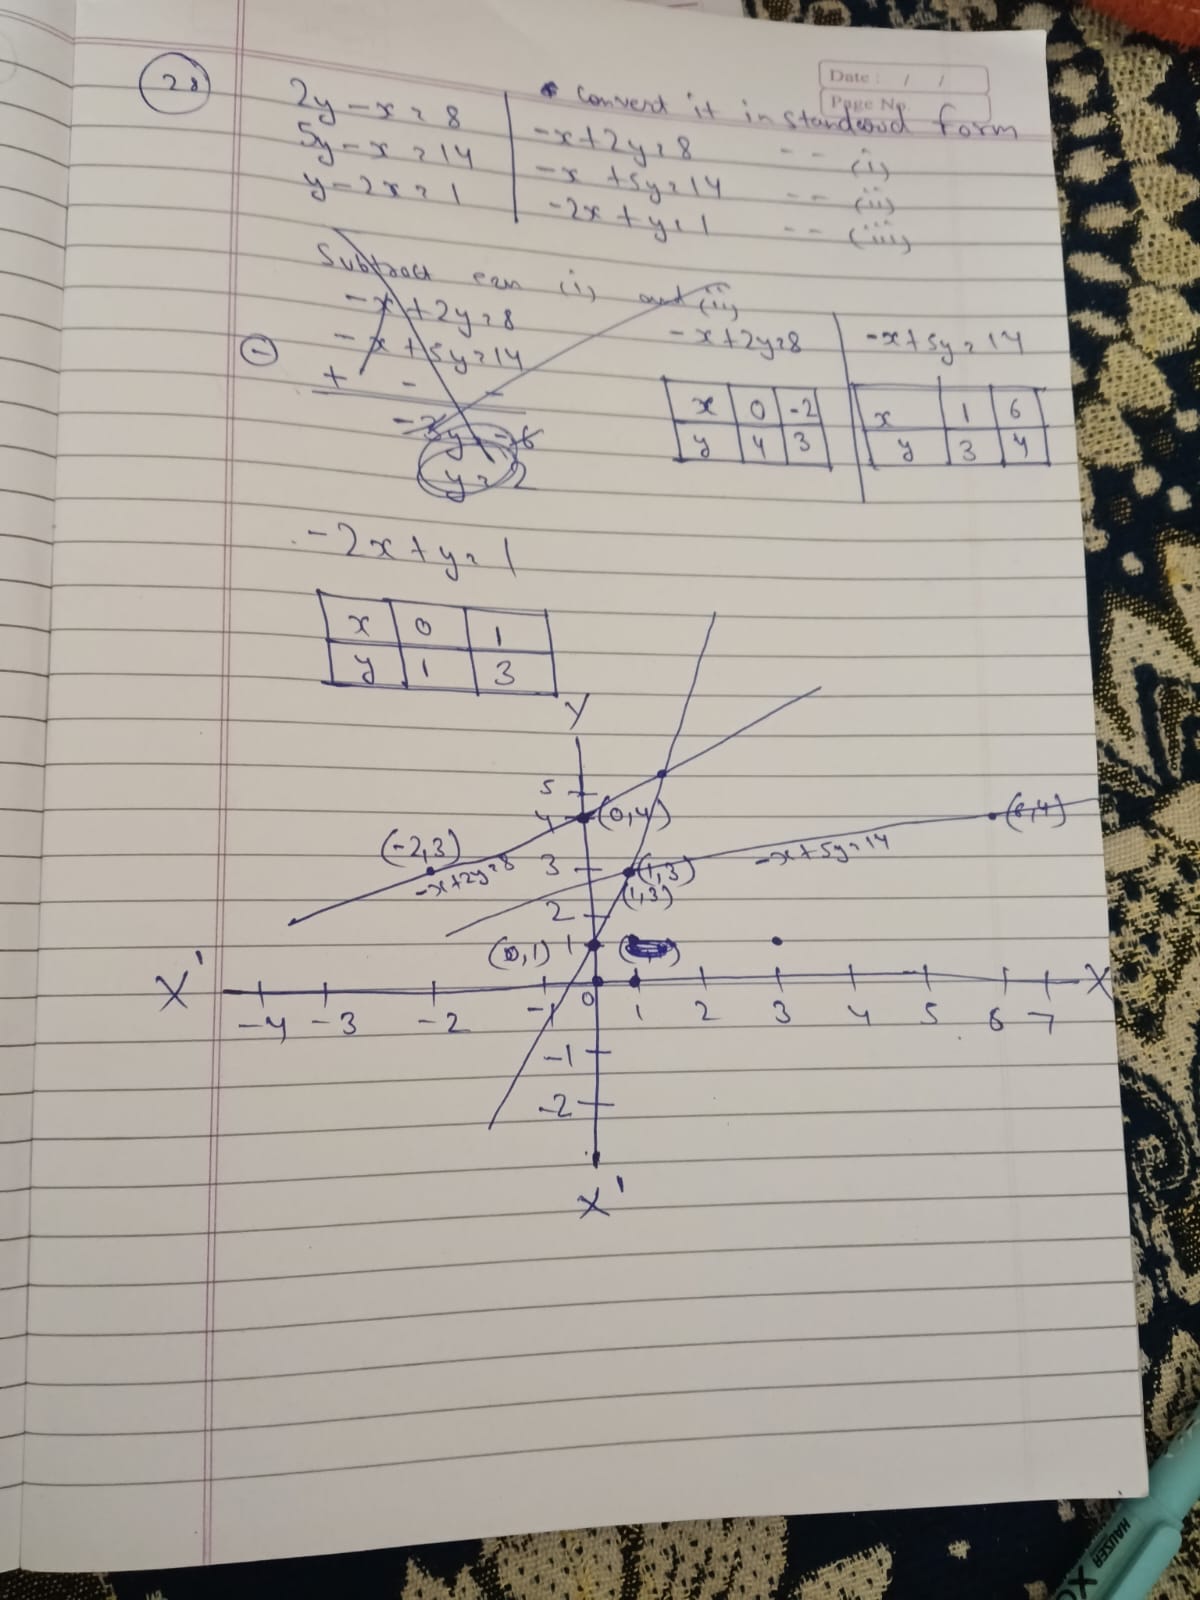 28
Date : / /
Page No.
2y - x = 8
5y - x = 14
y - 2x = 1
convert it in standerud form
-x + 2y = 8 -- (i)
-x + 5y = 14 -- (ii)
-2x + y = 1 -- (iii)
Subtract eqn (i) and (ii)
-x + 2y = 8
- x + 5y = 14
+ - -
-3y = -6
y = 2
-x + 2y = 8
x 0 -2
y 4 3
-x + 5y = 14
x 1 6
y 3 4
-2x + y = 1
x 0 1
y 1 3
Y
5
4 (0,4) (6,4)
(-2,3) -x+2y=8 3 (1,3) -x+5y=14
(1,3)
2
(0,1) 1
X' X
-4 -3 -2 -1 0 1 2 3 4 5 6 7
-1
-2
X'
HAUSER
XO